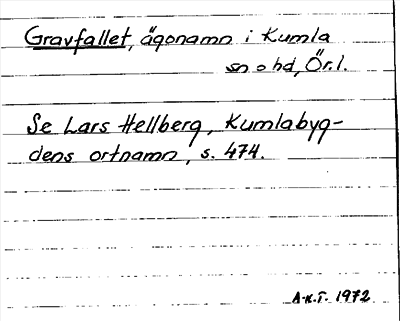 Gravfallet, ägonamn i Kumla
sn o hd, Ör. l.
Se Lars Hellberg, Kumlabyg-
dens ortnamn, s. 474.
A-K.T. 1972